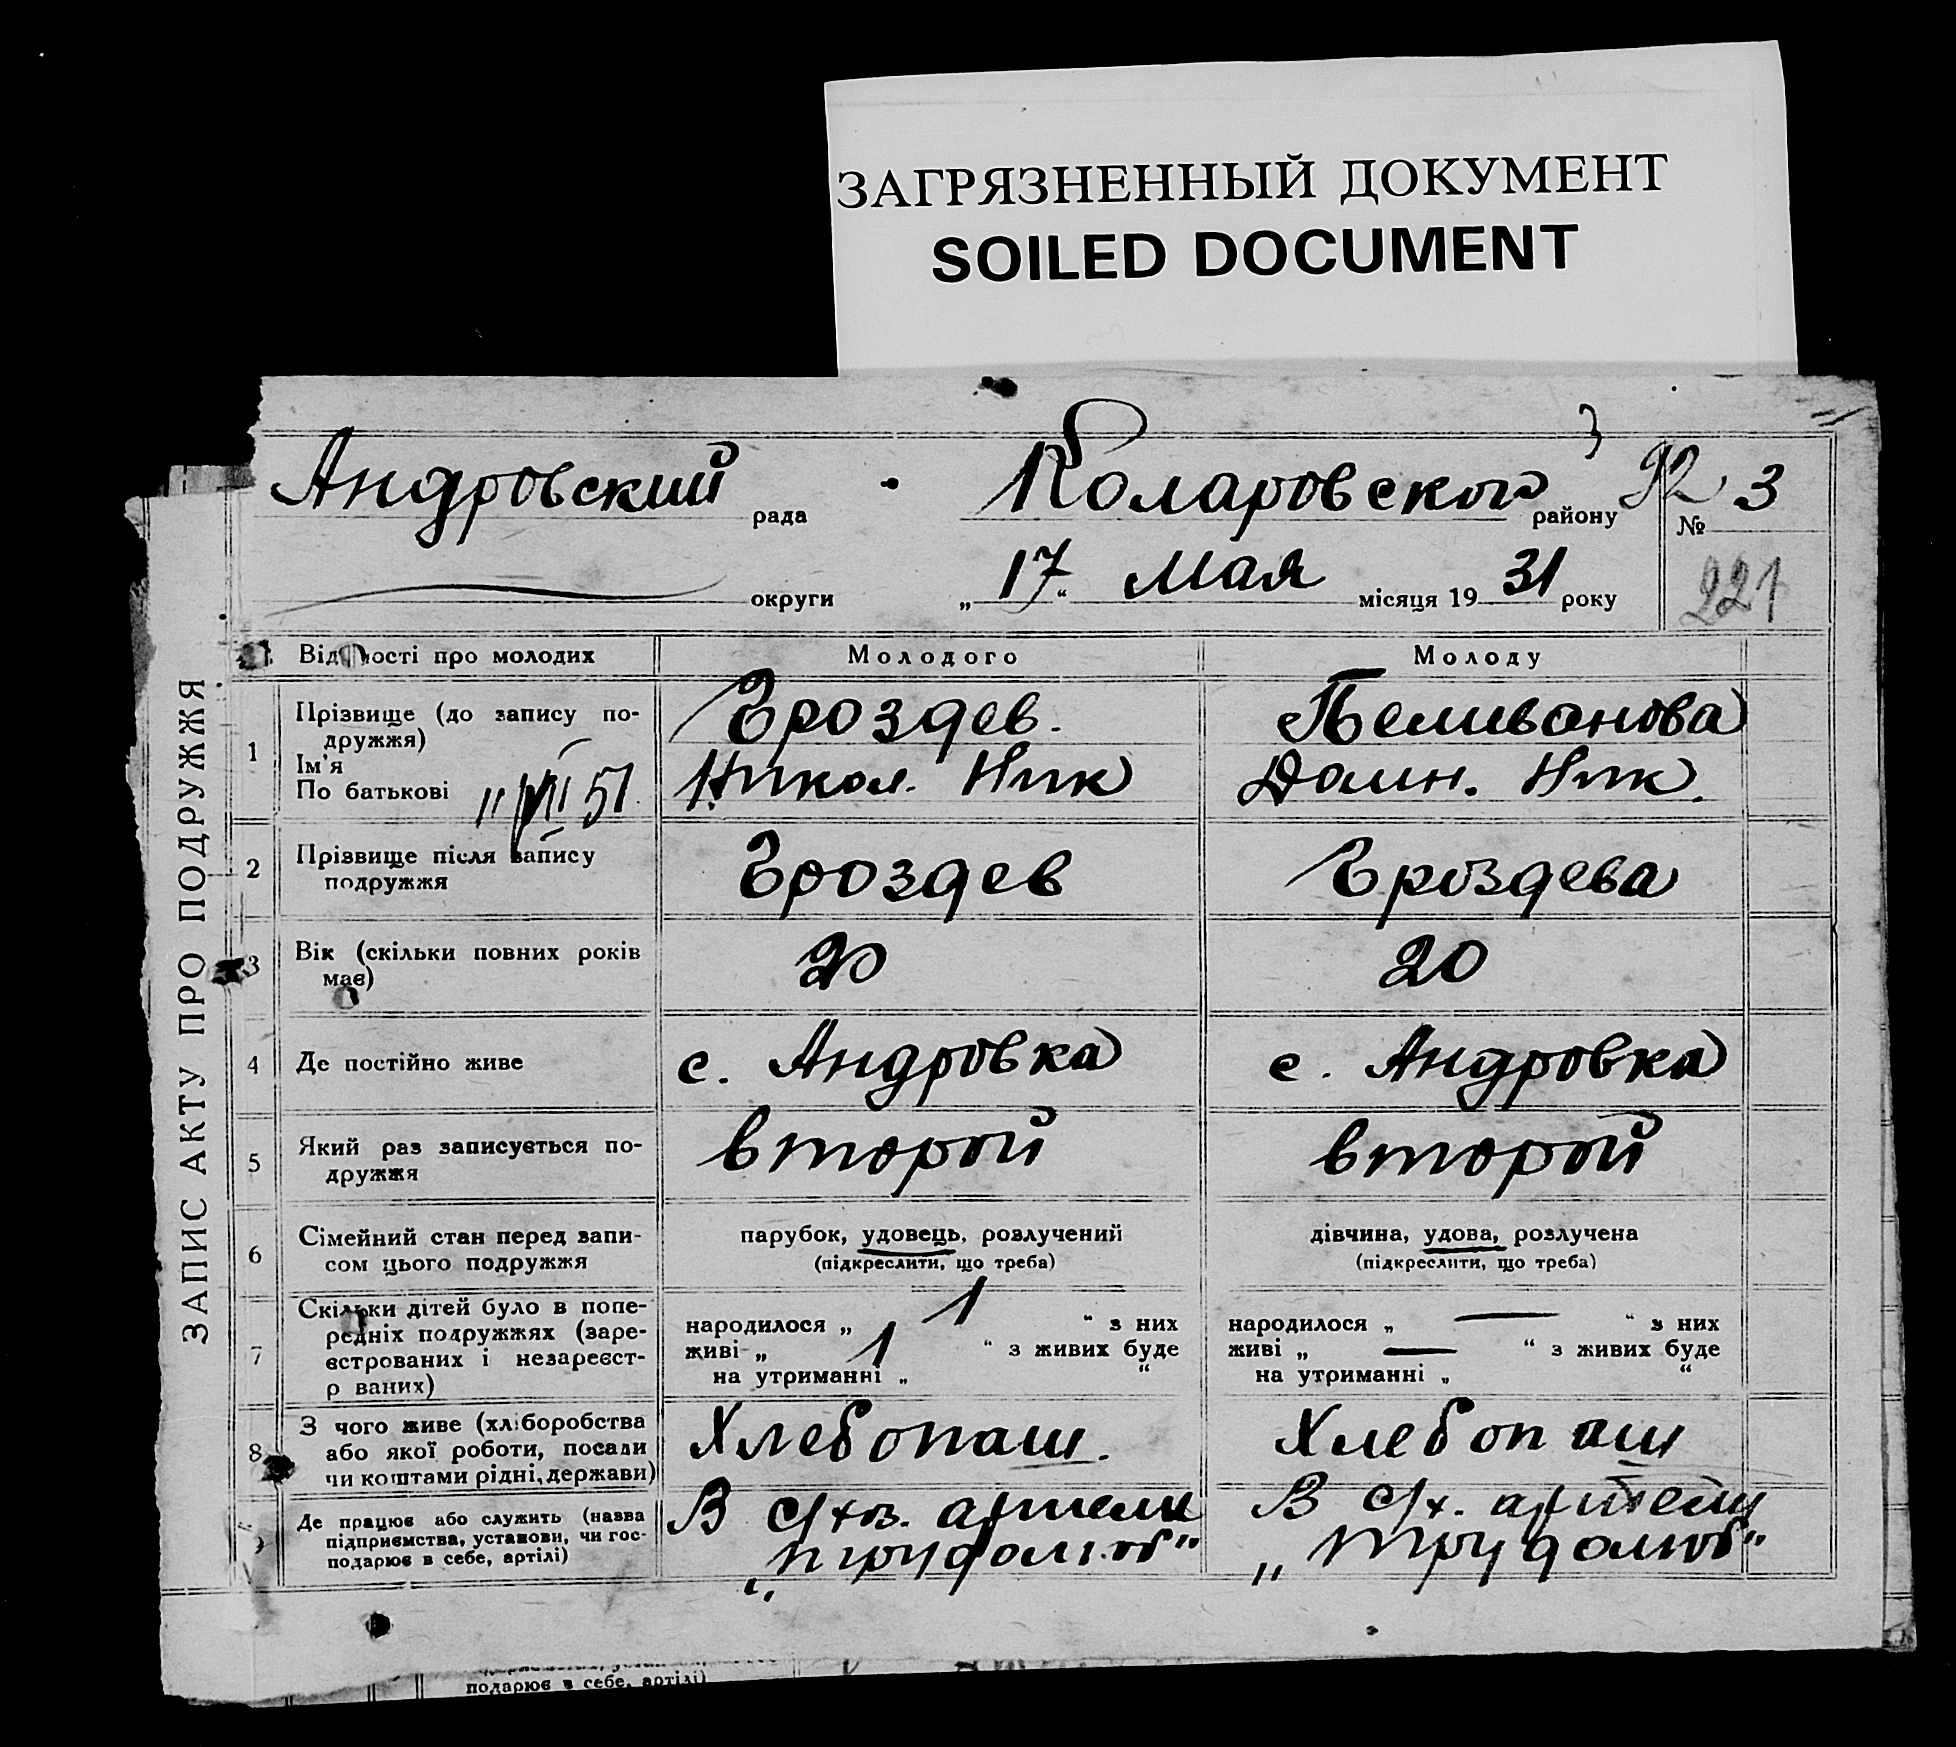 ЗАГРЯЗНЕННЫЙ ДОКУМЕНТ
SOILED DOCUMENT
Андровский рада Коларовского району № 3
92
округи „17“ Мая місяця 1931 року
221
ЗАПИС АКТУ ПРО ПОДРУЖЖЯ
Відомості про молодих Молодого Молоду
1 Прізвище (до запису по-
дружжя)
Ім'я
По батькові
Гроздев. Пеливанова
Никол. Ник Домн. Ник.
2 Прізвище після запису
подружжя
Гроздев Гроздева
3 Вік (скільки повних років
має)
20 20
4 Де постійно живе с. Андровка с. Андровка
5 Який раз записується по-
дружжя
второй второй
6 Сімейний стан перед запи-
сом цього подружжя
парубок, удовець, розлучений дівчина, удова, розлучена
(підкреслити, що треба) (підкреслити, що треба)
7 Скільки дітей було в попе-
редніх подружжях (заре-
єстрованих і незареєст-
р ваних)
народилося „ 1 “ з них народилося „ — “ з них
живі „ 1 “ з живих буде живі „ — “ з живих буде
на утриманні „ “ на утриманні „ “
8 З чого живе (хліборобства
або якої роботи, посади
чи коштами рідні, держави)
Хлебопаш. Хлебопаш
Де працює або служить (назва
підприємства, установи, чи гос-
подарює в себе, артілі)
В с/хоз. артели В с/х. артели
„Трудолюб“ „Трудолюб“
подарює в себе, артілі)